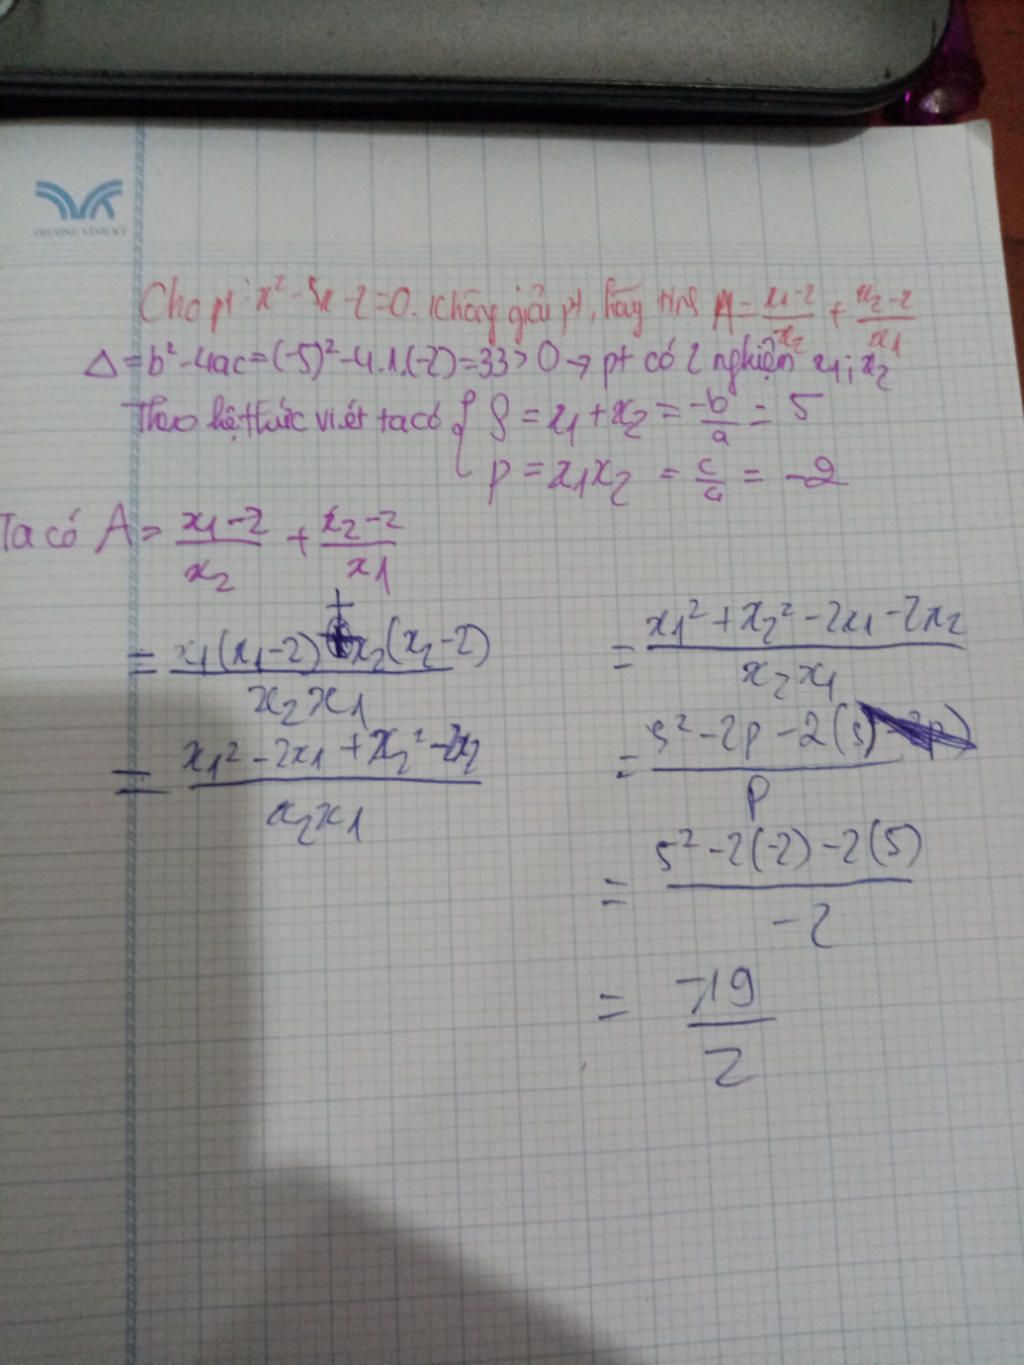 TRƯƠNG VĨNH KÝ
Cho pt: x² - 5x - 2 = 0. Không giải pt, hãy tính A = (x1 - 2)/x2 + (x2 - 2)/x1
Δ = b² - 4ac = (-5)² - 4.1.(-2) = 33 > 0 → pt có 2 nghiệm x1; x2
Theo hệ thức viét ta có { S = x1 + x2 = -b/a = 5
P = x1x2 = c/a = -2
Ta có A = (x1 - 2)/x2 + (x2 - 2)/x1
= (x1(x1 - 2) + x2(x2 - 2))/(x2x1)
= (x1² - 2x1 + x2² - 2x2)/(x2x1)
= (x1² + x2² - 2x1 - 2x2)/(x2x1)
= (S² - 2P - 2(S))/P
= (5² - 2(-2) - 2(5))/(-2)
= -19/2